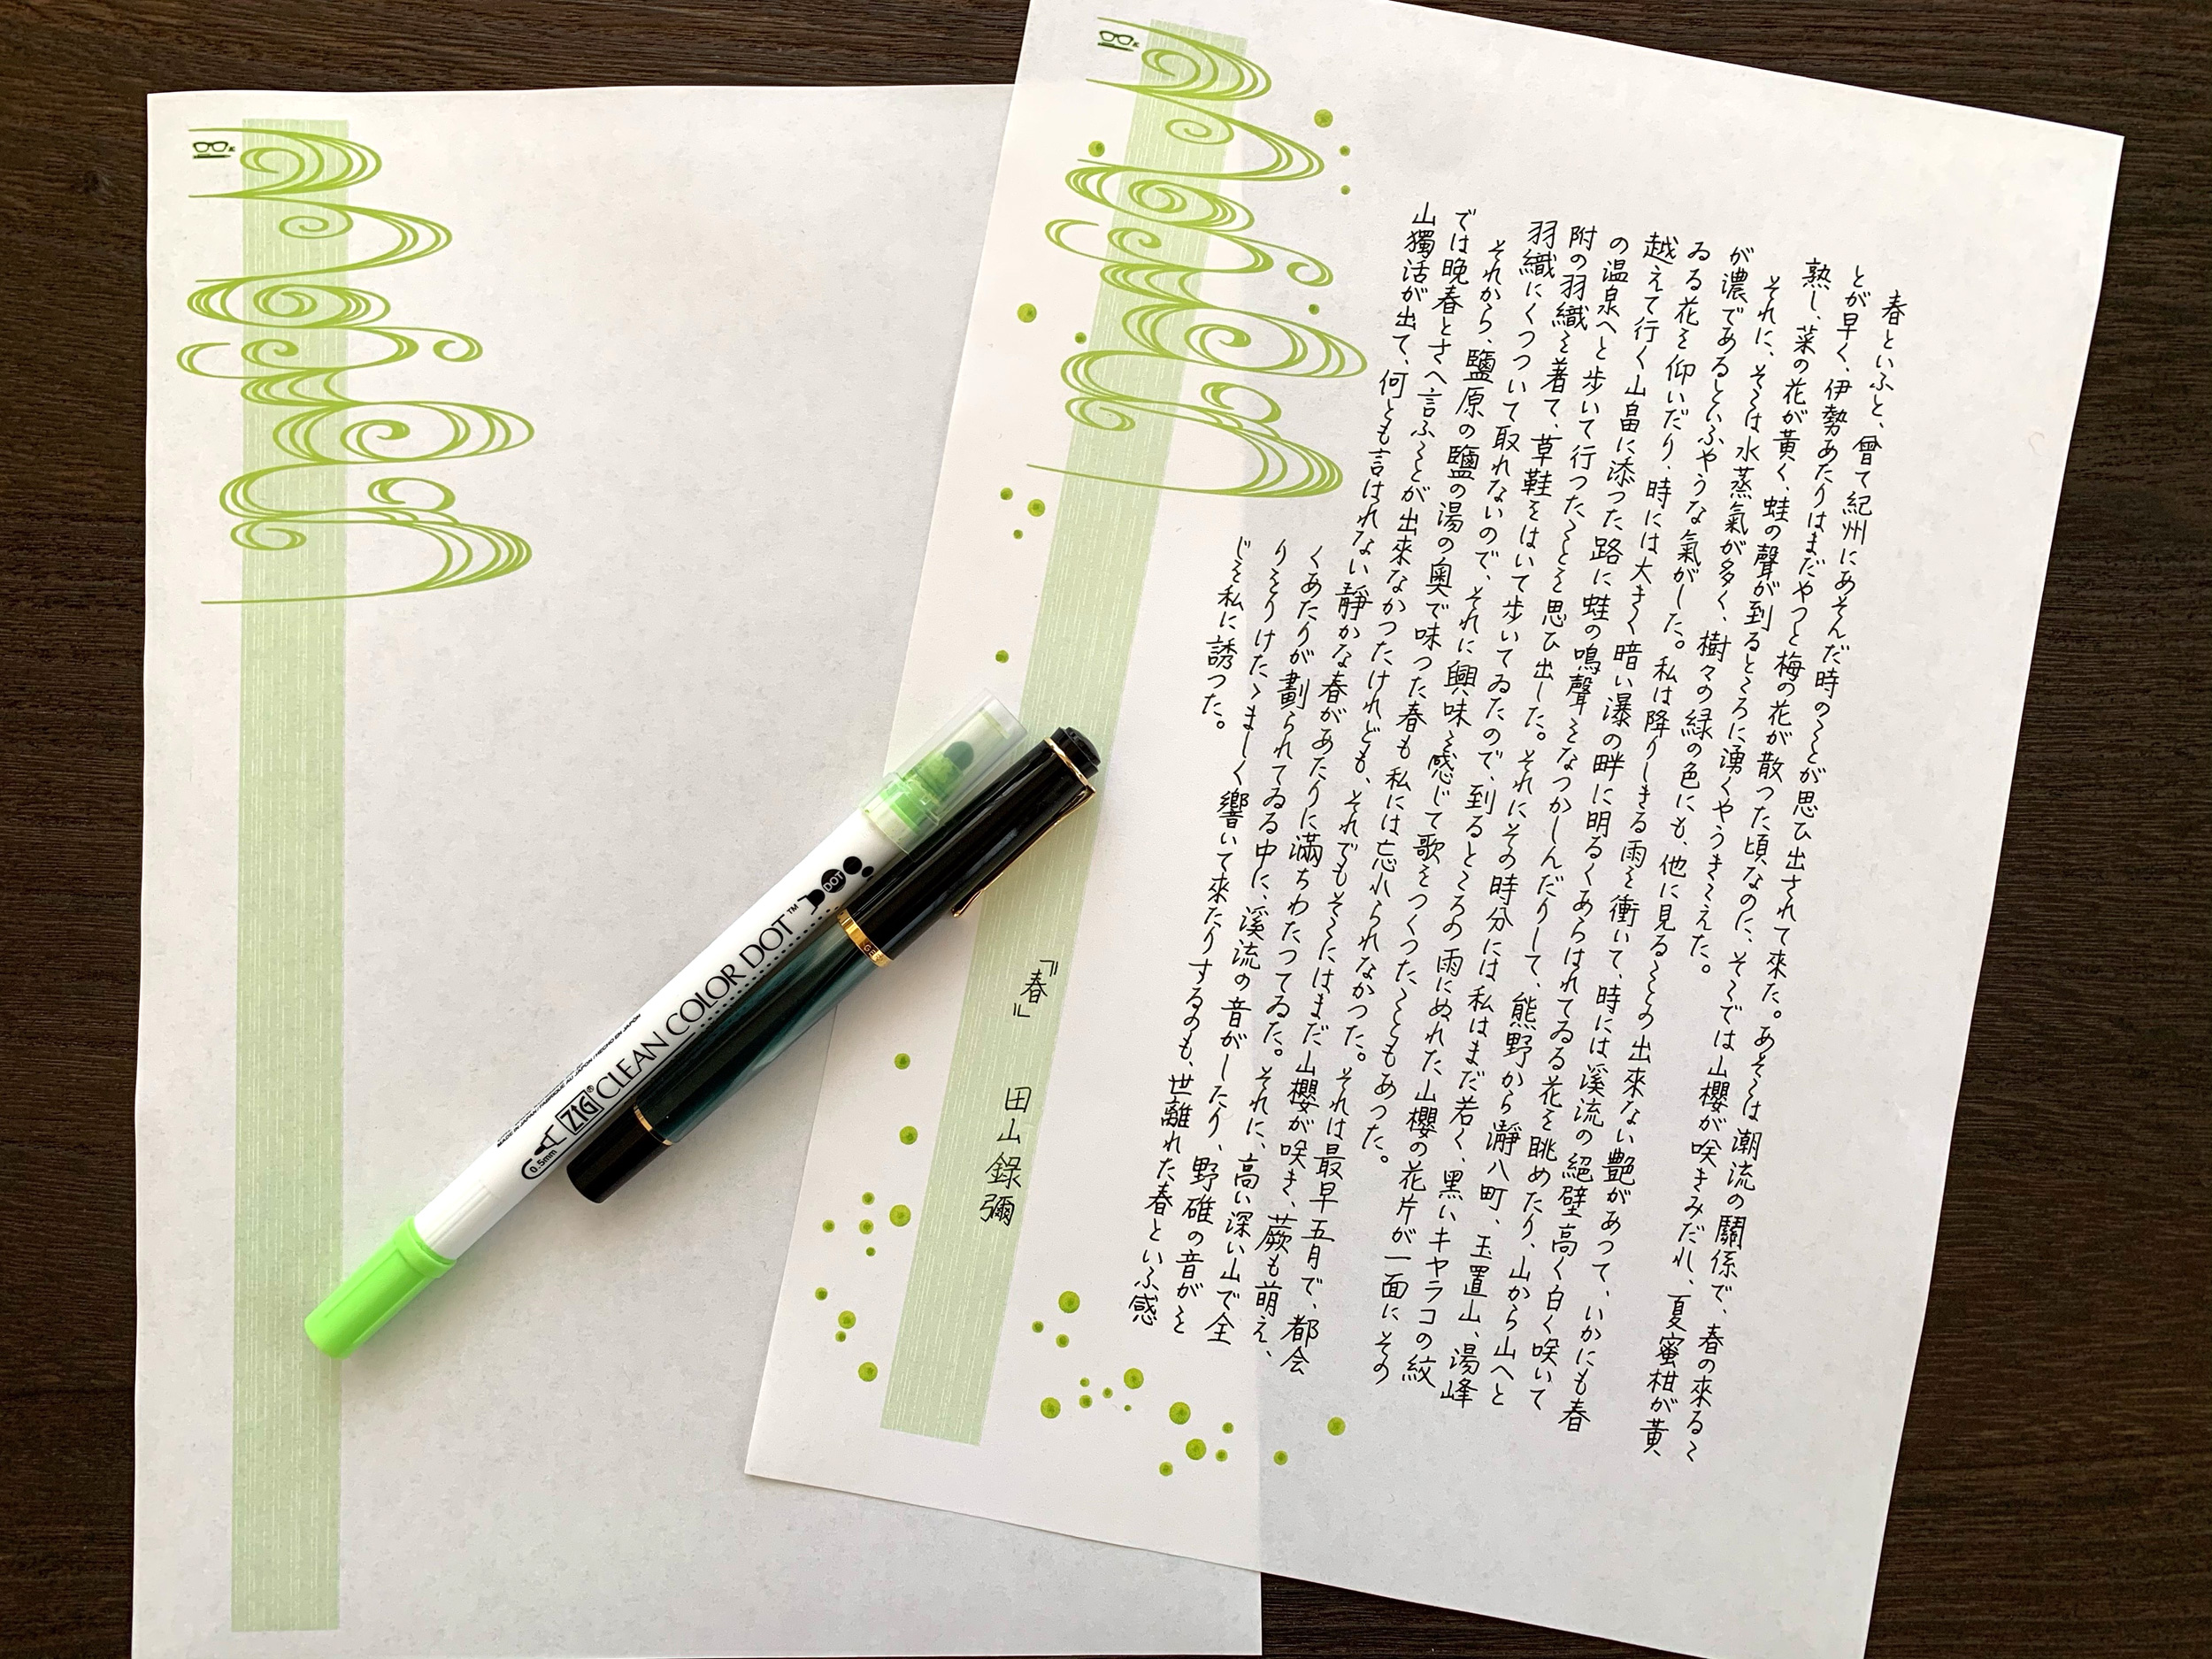 春といふと、曾て紀州にあそんだ時のことが思ひ出されて來た。あそこは潮流の關係で、春の來るこ
とが早く、伊勢あたりはまだやつと梅の花が散つた頃なのに、そこでは山櫻が咲きみだれ、夏蜜柑が黃
熟し、菜の花が黃く、蛙の聲が到るところに湧くやうきこえた。
それに、そこは水蒸氣が多く、樹々の緑の色にも、他に見ることの出來ない艶があつて、いかにも春
が濃であるといふやうな氣がした。私は降りしきる雨を衝いて、時には溪流の絕壁高く白く咲いて
ゐる花を仰いだり、時には大きく暗い瀑の畔に明るくあらはれてゐる花を眺めたり、山から山へと
越えて行く山畠に添つた路に蛙の鳴聲をなつかしんだりして、熊野から瀞八町、玉置山、湯峰
の温泉へと歩いて行つたことを思ひ出した。それにその時分には私はまだ若く、黑いキヤラコの紋
附の羽織を著て、草鞋をはいて歩いてゐたので、到るところの雨にぬれた山櫻の花片が一面にその
羽織にくつついて取れないので、それに興味を感じて歌をつくつたこともあつた。
それから、鹽原の鹽の湯の奥で味つた春も私には忘れられなかつた。それは最早五月で、都会
では晩春とさへ言ふことが出來なかつたけれども、それでもそこにはまだ山櫻が咲き、蕨も萌え、
山獨活が出て、何とも言はれない靜かな春があたりに滿ちわたつてゐた。それに、高い深い山で全
くあたりが劃られてゐる中に、溪流の音がしたり、野碓の音がこ
りこりけたゝましく響いて來たりするのも、世離れた春といふ感
じを私に誘つた。
『春』 田山錄彌
ZIG® CLEAN COLOR DOT™
DOT
0.5mm
MADE IN JAPAN / FABRIQUÉ AU JAPON / HECHO EN JAPÓN